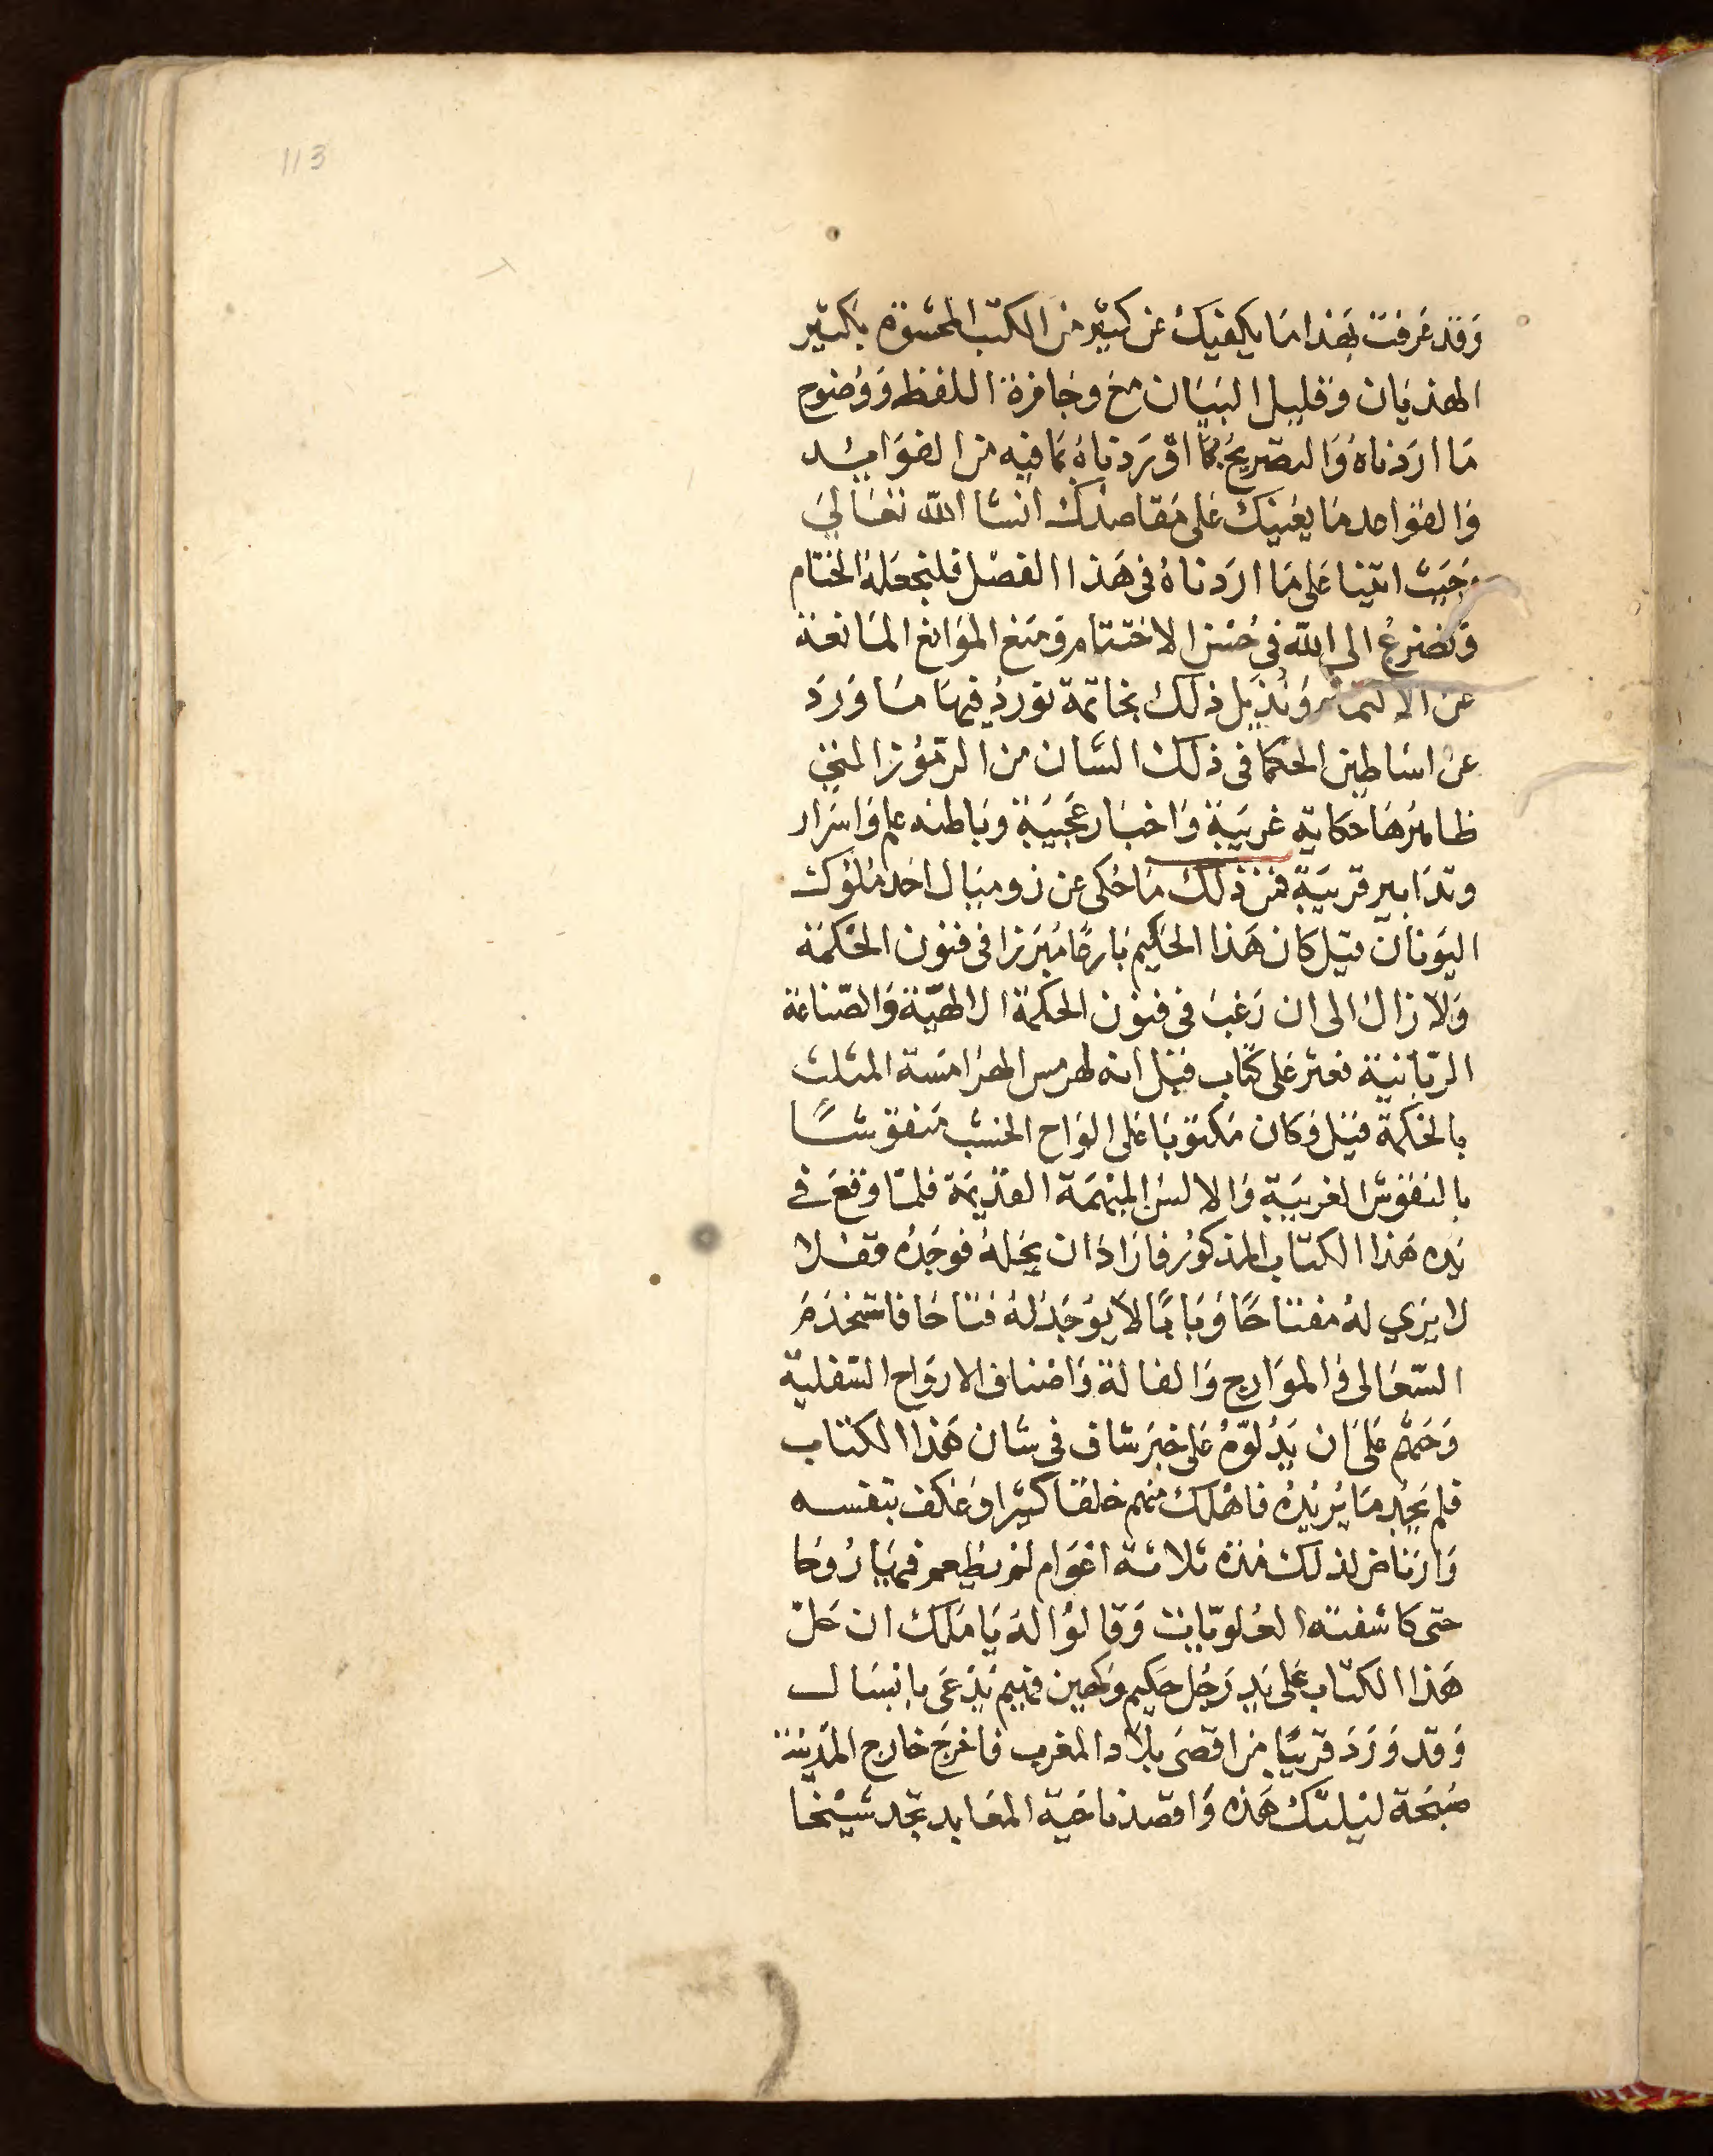 113
وَقد عَرفت بهَذا مَا يكفيك عَن كثير من الكتب المحشوة بكثير
الهذيان وَقليل البيَان مع وجَازة اللفظ وَوُضوح
مَا اردناهُ وَالتصريح بمَا اوردناهُ بمافيه من الفوَايد
وَالقوَاعد مَا يعينك عَلى مقاصدك انشا الله تعَالي
وحَيث اتينا عَلى مَا اردناهُ في هَذا الفصل فلنجعَلهُ الختام
وَنضرع الى الله في حُسن الاختتام ومَنع الموَانع المَانعة
عن الالتمام وَنُذيل ذلك بخاتمة نوردُ فيهَا مَا وَرَدَ
عن اسَاطين الحكما فى ذلك الشان من الرمُوز التي
ظاهرهَا حكاية غَريبَة وَاخبَار عَجيبَة وبَاطنه علم وَاسرَار
وتدَابير قريبَة فمن ذلك مَا حُكى عن زوميَال احَد مُلوك
اليَونان قيل كان هَذا الحَكيم بَارعًا مُبَرزا فى فنون الحكمَة
وَلا زالَ الى ان رَغبَ فى فنون الحكمة الالهيَّة وَالصّناعة
الربَّانيَّة فعثر عَلى كتاب قيل انه لهرمس الهَرامسَة المثلث
بالحكمة قيل وَكان مكتوبًا عَلى الوَاح الخشب مَنقوشًا
بالنقوش الغريبَة وَالالسُن المبهمَة القديمَة فلمّا وَقعَ في
يَده هَذا الكتاب المذكور فارَادَ ان يحَلهُ فوجَدُه قفلا
لا يَري لهُ مفتاحًا وَبَابًا لا يوُجَد لهُ فتاحَا فاستخدَمَ
السّعَالى وَالموَارج وَالغالة وَاصناف الارواح السّفلية
وَحَثهُم عَلى ان يَدُلوّهُ عَلى خبَر شاف في شان هَذا الكتاب
فلم يَجد مَا يُريْدهُ فاهْلك منهم خلقا كثيرا وَعَكف بنفسه
وَارتاض لذلك مُدة ثلاثة اعوَام لم يطعم فيهَا رُوحَا
حتى كاشفته العُلويّات وَقالوُا لهُ يَا مَلك ان حَلّ
هَذا الكتاب عَلى يَد رَجُل حَكيم وَكهين فهيم يُدعَى بانسَال
وَقد وَرَدَ قريبًا من اقصَى بلاد المغرب فاخرج خَارج المدينة
صَبحَة ليلتك هَذه وَاقصد ناحَية المعَابد تجد شيْخا